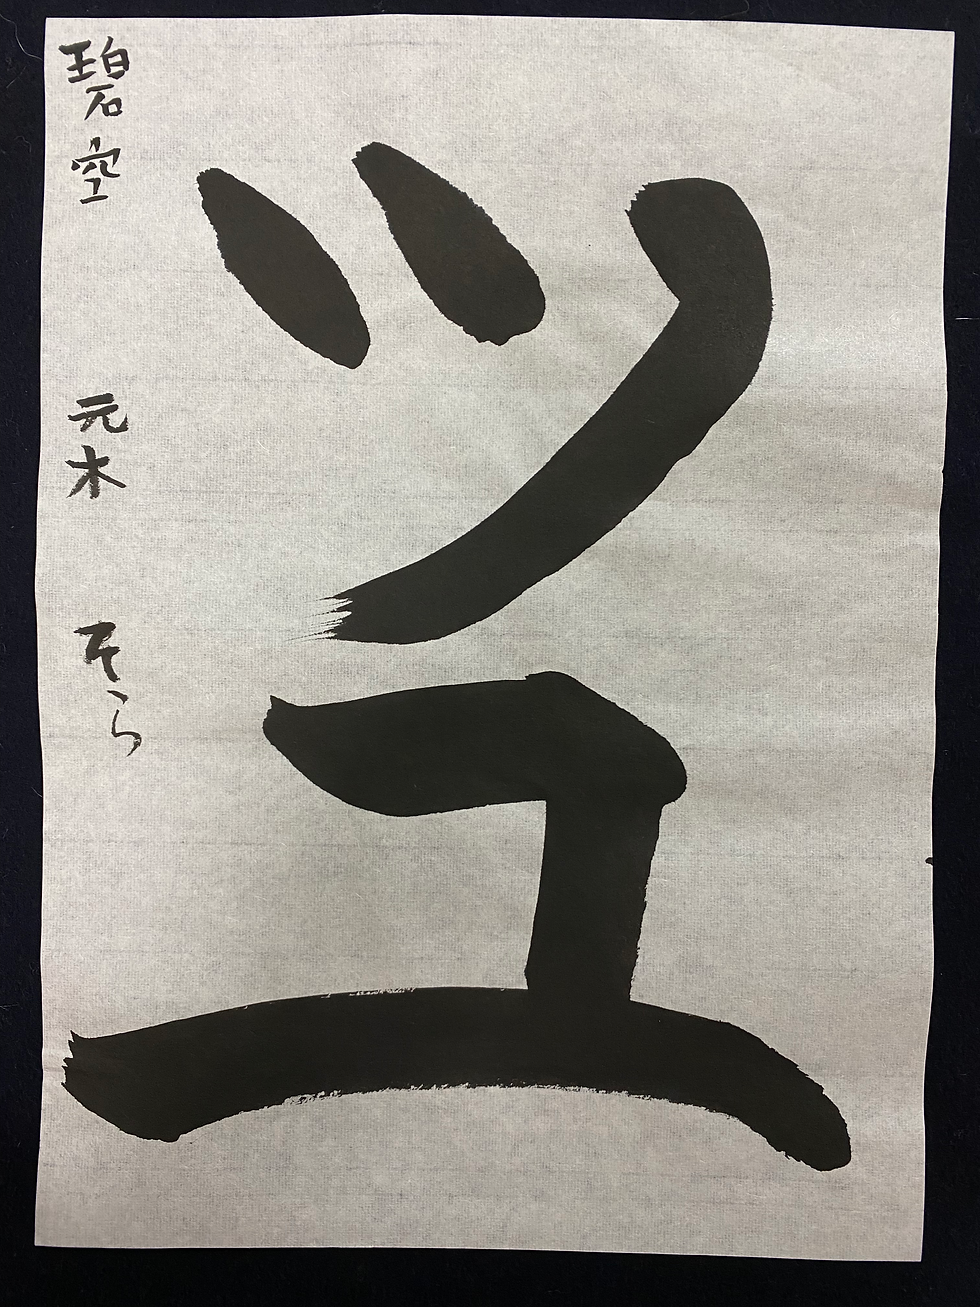 ツユ
碧空 元木 そら